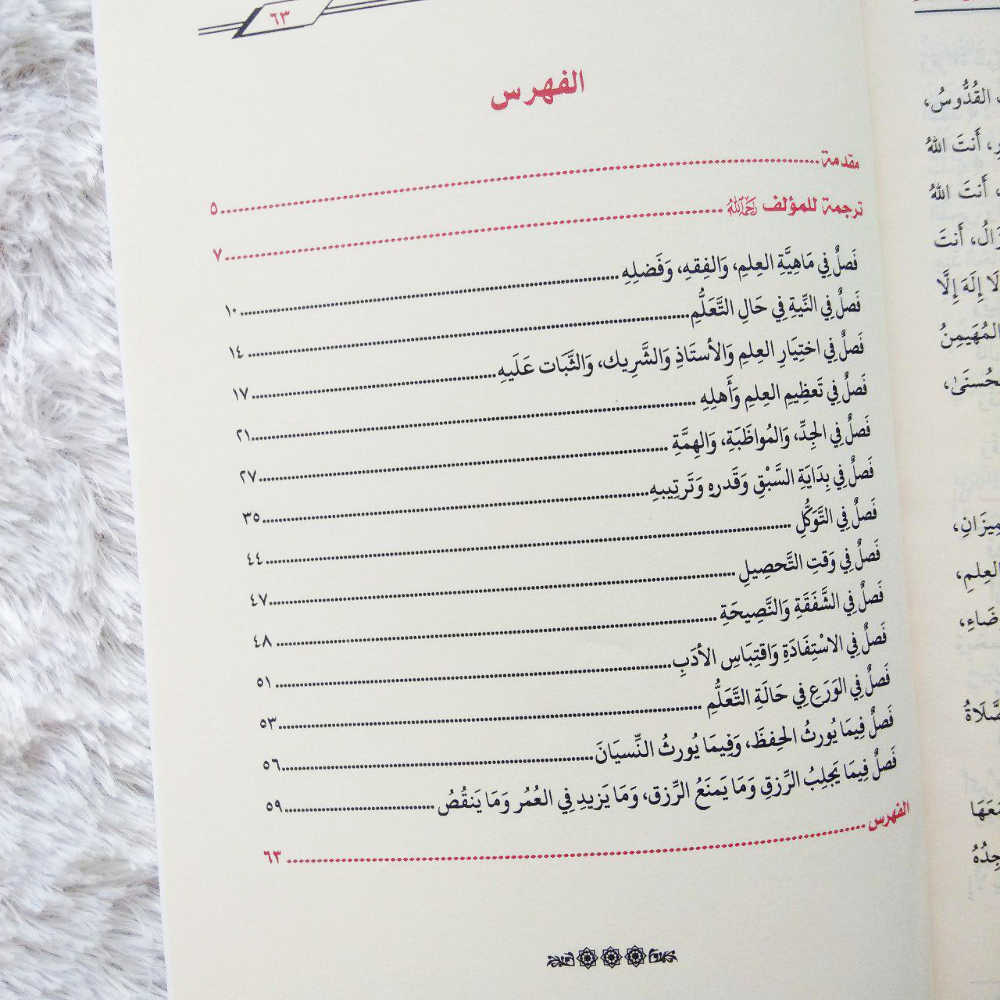 ٦٣
الفهرس
مقدمة ٥
ترجمة للمؤلف رحمه الله ٧
فَصلٌ فِي مَاهِيَّةِ العِلمِ، وَالفقهِ، وَفَضلِهِ ١٠
فَصلٌ فِي النِّيةِ فِي حَالِ التَّعَلُّمِ ١٤
فَصلٌ فِي اختِيَارِ العِلمِ وَالأستَاذِ وَالشَّرِيك، وَالثَّبَات عَلَيهِ ١٧
فَصلٌ فِي تَعظِيمِ العِلمِ وَأَهلِهِ ٢١
فَصلٌ فِي الجِدِّ، وَالمُواظَبَةِ، وَالهِمَّةِ ٢٧
فَصلٌ فِي بِدَايَةِ السَّبْقِ وَقَدرهِ وَتَرتِيبهِ ٣٥
فَصلٌ فِي التَّوَكُّلِ ٤٤
فَصلٌ فِي وَقتِ التَّحصِيلِ ٤٧
فَصلٌ فِي الشَّفَقَةِ وَالنَّصِيحَةِ ٤٨
فَصلٌ فِي الاسْتِفَادَةِ وَاقتِبَاسِ الأدَبِ ٥١
فَصلٌ فِي الوَرَعِ فِي حَالَةِ التَّعَلُّمِ ٥٣
فَصلٌ فِيمَا يُورثُ الحِفظَ، وَفِيمَا يُورثُ النِّسيَانَ ٥٦
فَصلٌ فِيمَا يَجلِبُ الرِّزقِ وَمَا يَمنَعُ الرِّزق، وَمَا يَزيدِ فِي العُمُر وَمَا يَنقُصُ ٥٩
الفهرس ٦٣
القُدُّوسُ،
أَنتَ اللهُ
أَنتَ اللهُ
أَنتَ
إِلَهَ إِلَّا
المُهَيمِنُ
العِلمِ،